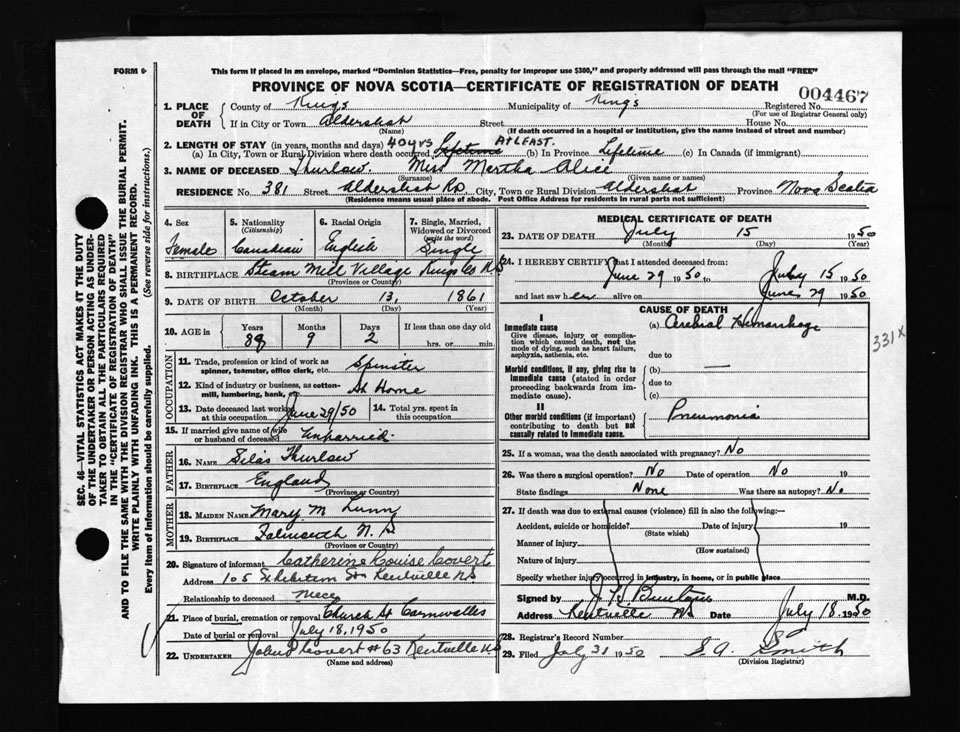 FORM 6
This form if placed in an envelope, marked "Dominion Statistics—Free, penalty for improper use $300," and properly addressed will pass through the mail "FREE"
PROVINCE OF NOVA SCOTIA—CERTIFICATE OF REGISTRATION OF DEATH
004467
1. PLACE OF DEATH
County of Kings Municipality of Kings Registered No.
(For use of Registrar General only)
If in City or Town Aldershot Street House No.
(Name) (If death occurred in a hospital or institution, give the name instead of street and number)
2. LENGTH OF STAY (in years, months and days) 40 yrs AT LEAST.
(a) In City, Town or Rural Division where death occurred Lifetime (b) In Province Lifetime (c) In Canada (if immigrant)
3. NAME OF DECEASED Thurlow. Miss Martha Alice
(Surname) (Given name or names)
RESIDENCE No. 381 Street Aldershot Rd City, Town or Rural Division Aldershot Province Nova Scotia
(Residence means usual place of abode. Post Office Address for residents in rural parts not sufficient)
4. Sex Female
5. Nationality (Citizenship) Canadian
6. Racial Origin English
7. Single, Married, Widowed or Divorced (write the word) Single
8. BIRTHPLACE Steam Mill Village Kings Co N.S
(Province or Country)
9. DATE OF BIRTH October 13, 1861
(Month) (Day) (Year)
10. AGE in Years Months Days If less than one day old
88 9 2 hrs. or min.
OCCUPATION
11. Trade, profession or kind of work as spinner, teamster, office clerk, etc. Spinster
12. Kind of industry or business, as cotton-mill, lumbering, bank, etc. At Home
13. Date deceased last worked at this occupation June 29/50
14. Total yrs. spent in this occupation
15. If married give name of wife or husband of deceased Unmarried.
FATHER
16. NAME Silas Thurlow
17. BIRTHPLACE England
(Province or Country)
MOTHER
18. MAIDEN NAME Mary M Lunn
19. BIRTHPLACE Falmouth N. S
(Province or Country)
20. Signature of informant Catherine Louise Covert
Address 105 Exhibition St Kentville NS
Relationship to deceased niece
21. Place of burial, cremation or removal Church St Cornwallis
Date of burial or removal July 18, 1950
22. UNDERTAKER Covert #63 Kentville N.S
(Name and address)
MEDICAL CERTIFICATE OF DEATH
23. DATE OF DEATH July 15 1950
(Month) (Day) (Year)
24. I HEREBY CERTIFY that I attended deceased from:
June 29 1950 to July 15 1950
and last saw her alive on June 29 1950
CAUSE OF DEATH
I
Immediate cause
Give disease, injury or complication which caused death, not the mode of dying, such as heart failure, asphyxia, asthenia, etc.
(a) Cerebral Hemorrhage
331 X
due to
Morbid conditions, if any, giving rise to immediate cause (stated in order proceeding backwards from immediate cause).
(b) —
due to
(c)
II
Other morbid conditions (if important) contributing to death but not causally related to immediate cause.
Pneumonia
25. If a woman, was the death associated with pregnancy? No
26. Was there a surgical operation? No Date of operation No 19
State findings None Was there an autopsy? No
27. If death was due to external causes (violence) fill in also the following:—
Accident, suicide or homicide? Date of injury 19
(State which)
Manner of injury
(How sustained)
Nature of injury
Specify whether injury occurred in industry, in home, or in public place
Signed by M.D.
Address Kentville NS Date July 18, 1950
28. Registrar's Record Number
29. Filed July 31 1950 S. A. Smith
(Division Registrar)
SEC. 46—VITAL STATISTICS ACT MAKES IT THE DUTY
OF THE UNDERTAKER OR PERSON ACTING AS UNDER-
TAKER TO OBTAIN ALL THE PARTICULARS REQUIRED
IN THE "CERTIFICATE OF REGISTRATION OF DEATH"
AND TO FILE THE SAME WITH THE DIVISION REGISTRAR WHO SHALL ISSUE THE BURIAL PERMIT.
WRITE PLAINLY WITH UNFADING INK. THIS IS A PERMANENT RECORD.
Every item of Information should be carefully supplied. (See reverse side for instructions.)